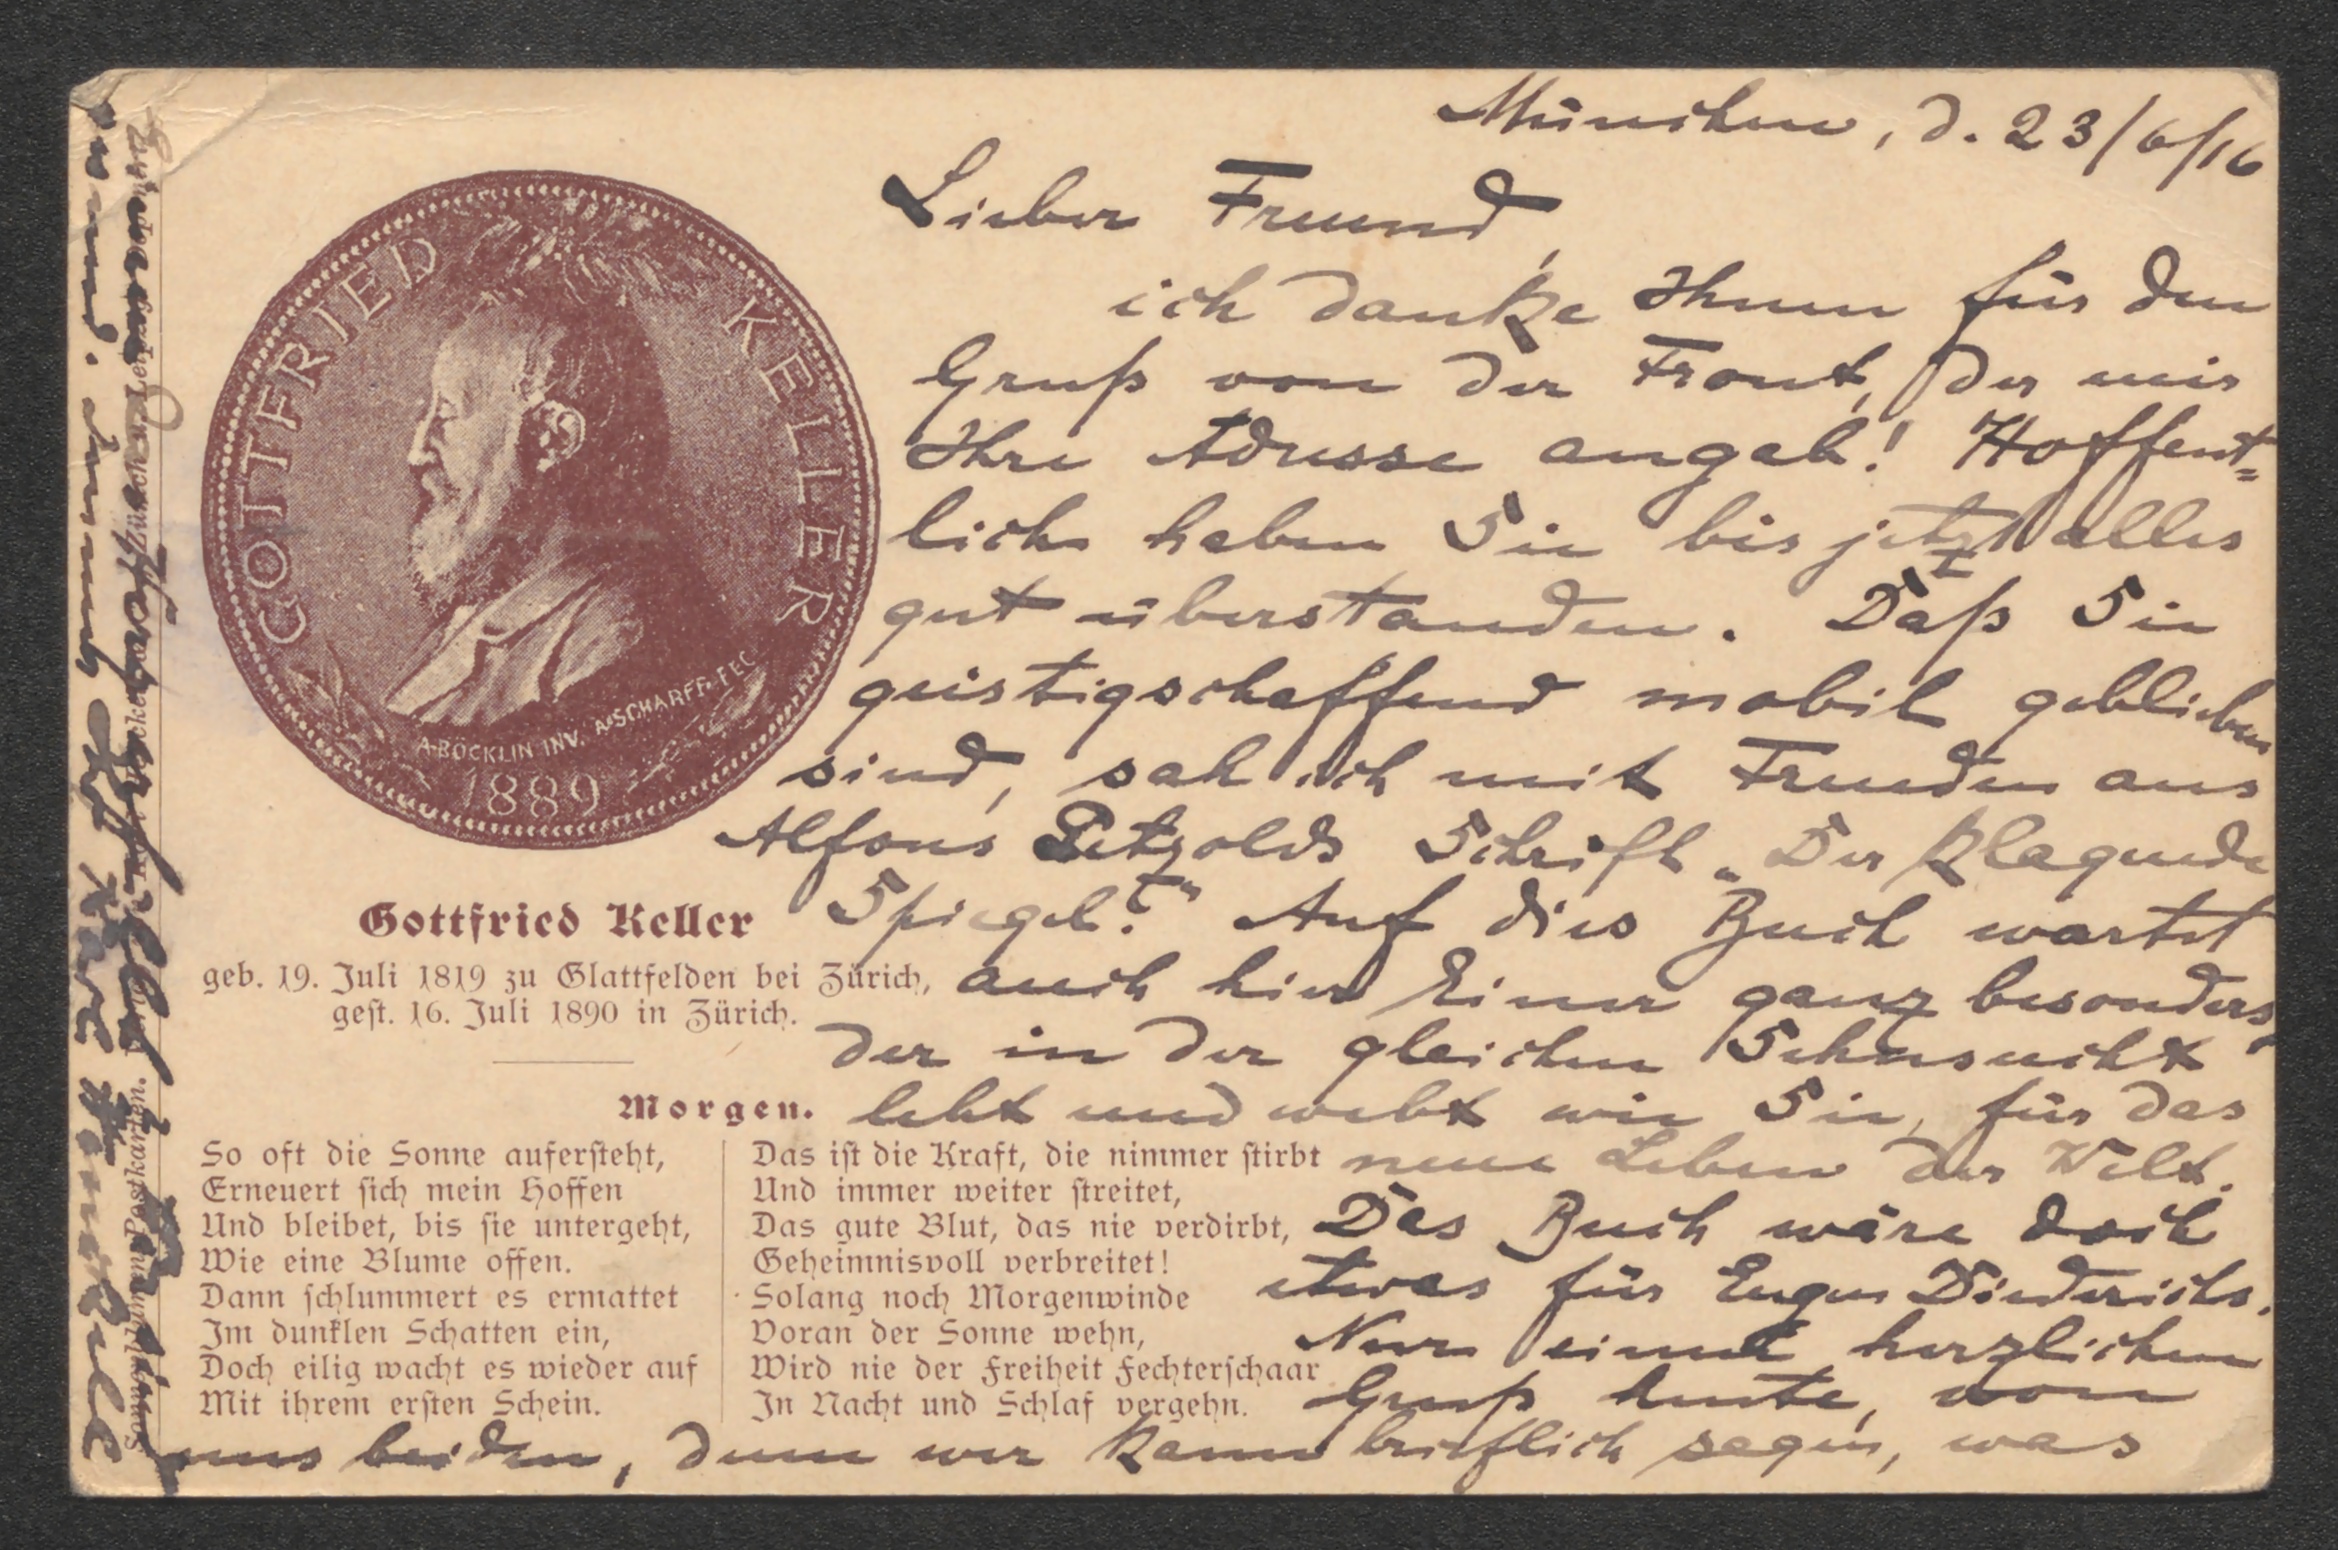 München, d. 23/6/16
Lieber Freund,
ich danke Ihnen für den
Gruß von der Front, der mir
Ihre Adresse angab! Hoffent=
lich haben Sie bis jetzt alles
gut überstanden. Daß Sie
geistigschaffend mobil geblieben
sind, sah ich mit Freuden aus
Alfons Petzolds Schrift „Der klagende
Spiegel." Auf dies Buch wartet
auch hier Einer ganz besonders,
der in der gleichen Sehnsucht
lebt und webt wie Sie, für das
neue Leben der Welt.
Das Buch wäre doch
etwas für Eugen Diederichs.
Nur einen herzlichen
Gruß heute, von
uns beiden, denn wer kann brieflich sagen, was
GOTTFRIED KELLER
A. BÖCKLIN INV. A. SCHARFF FEC.
1889
Gottfried Keller
geb. 19. Juli 1819 zu Glattfelden bei Zürich,
gest. 16. Juli 1890 in Zürich.
Morgen.
So oft die Sonne aufersteht,
Erneuert sich mein Hoffen
Und bleibet, bis sie untergeht,
Wie eine Blume offen.
Dann schlummert es ermattet
Im dunklen Schatten ein,
Doch eilig wacht es wieder auf
Mit ihrem ersten Schein.
Das ist die Kraft, die nimmer stirbt
Und immer weiter streitet,
Das gute Blut, das nie verdirbt,
Geheimnisvoll verbreitet!
Solang noch Morgenwinde
Voran der Sonne wehn,
Wird nie der Freiheit Fechterschaar
In Nacht und Schlaf vergehn.
Postkarten.
Karl Henckell